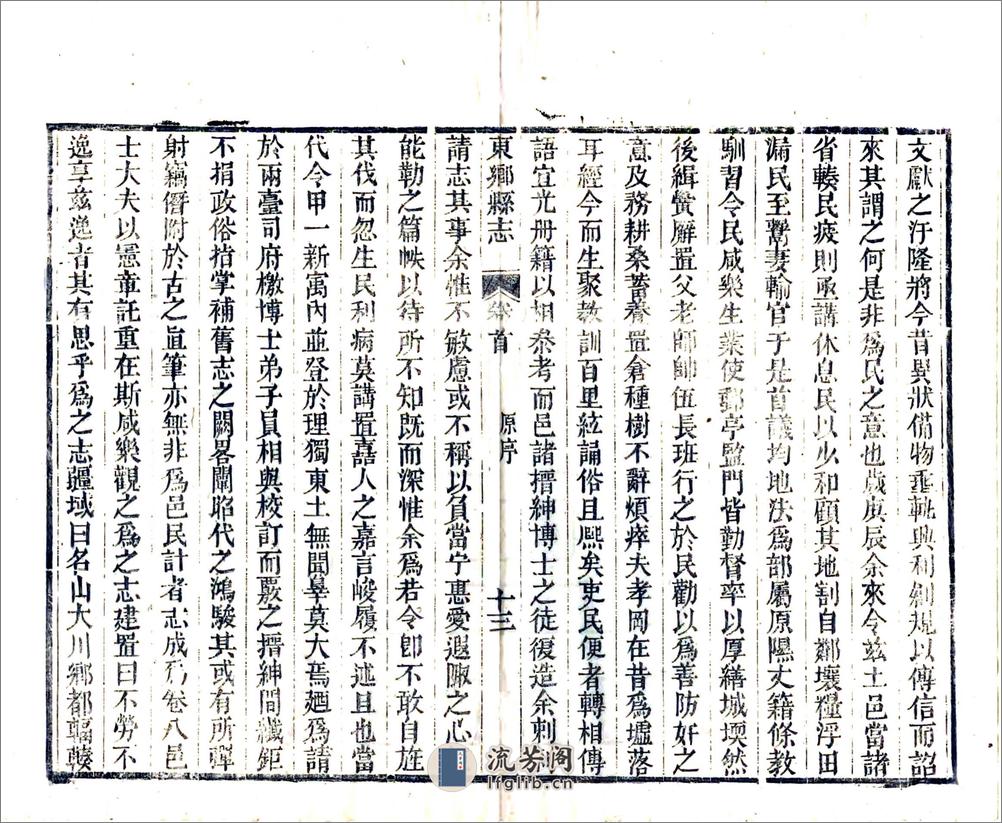 文獻之汙隆將今昔異狀備物垂軌興利創規以傳信而詔
來其謂之何是非為民之意也歲庚辰余來令茲土邑當諸
省輳民疲則亟講休息民以少和顧其地割自鄰壤糧浮田
漏民至鬻妻輸官于是首議均地法為部屬原隰丈籍條教
馴習令民咸樂生業使郵亭監門皆勤督率以厚繕城堧然
後緝黌廨置父老師帥伍長班行之於民勸以為善防奸之
意及務耕桑蓄養置倉種樹不辭煩瘁夫孝岡在昔為墟落
耳經今而生聚教訓百里絃誦俗且熙矣吏民便者轉相傳
語宜光册籍以相叅考而邑諸搢紳博士之徒復造余刺
東鄉縣志 卷首 原序 十三
請志其事余惟不敏慮或不稱以負當宁惠愛遐陬之心
能勒之篇帙以待所不知既而深惟余為若令卽不敢自旌
其伐而忽生民利病莫講置嘉人之嘉言峻履不述且也當
代令甲一新寓內並登於理獨東土無聞辜莫大焉廼為請
於兩臺司府檄博士弟子員相與校訂而覈之搢紳間纖鉅
不捐政俗掊掌補舊志之闕畧闡昭代之鴻駿其或有所殫
射竊僭附於古之直筆亦無非為邑民計者志成為卷八邑
士大夫以憲章託重在斯咸樂觀之為之志建置曰不勞不
逸享茲逸者其有思乎為之志疆域曰名山大川鄉都輻輳
流芳阁
lfglib.cn